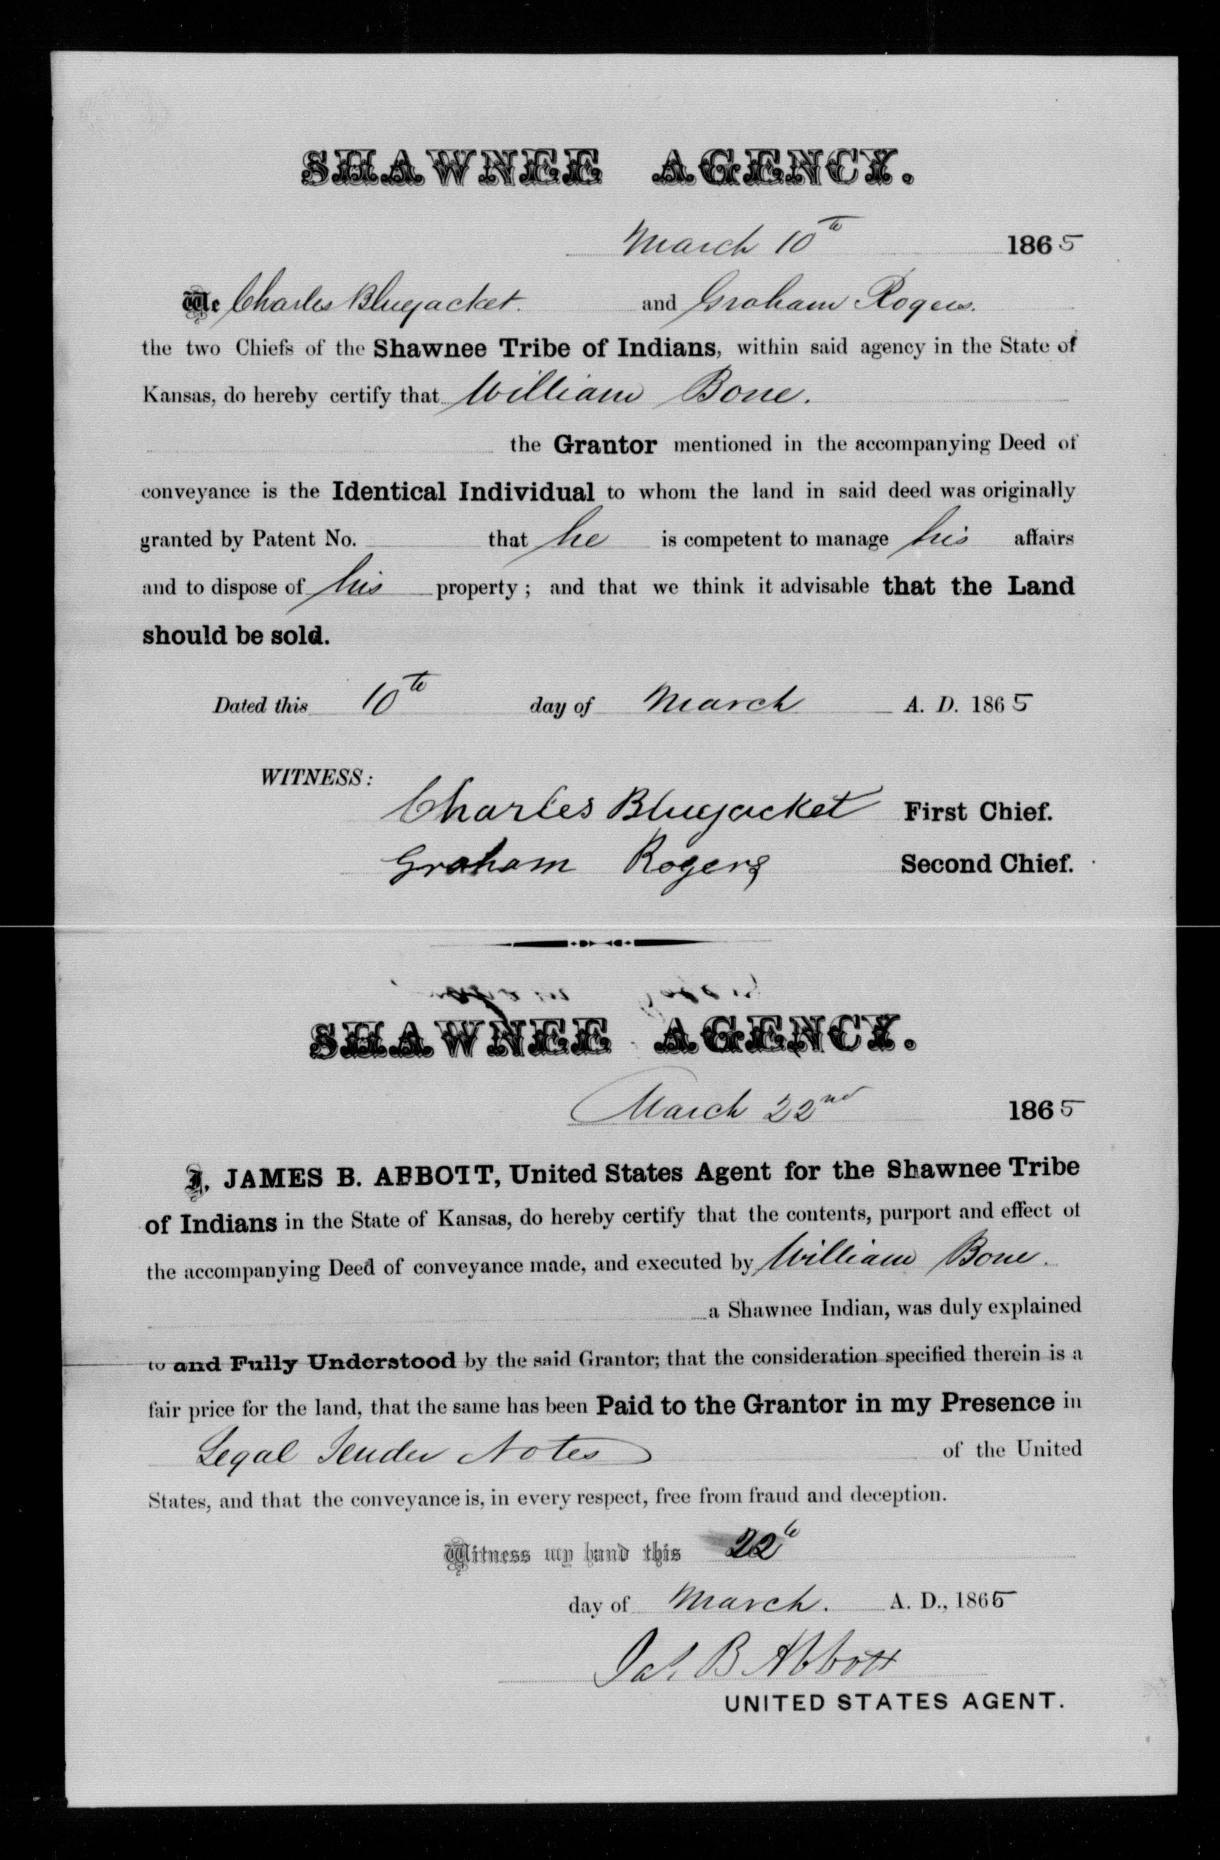 SHAWNEE AGENCY.
March 10th 1865
We Charles Bluejacket. and Graham Rogers.
the two Chiefs of the Shawnee Tribe of Indians, within said agency in the State of
Kansas, do hereby certify that William Bone.
the Grantor mentioned in the accompanying Deed of
conveyance is the Identical Individual to whom the land in said deed was originally
granted by Patent No. that he is competent to manage his affairs
and to dispose of his property; and that we think it advisable that the Land
should be sold.
Dated this 10th day of March A. D. 1865
WITNESS:
Charles Bluejacket First Chief.
Graham Rogers Second Chief.
SHAWNEE AGENCY.
March 22nd 1865
I, JAMES B. ABBOTT, United States Agent for the Shawnee Tribe
of Indians in the State of Kansas, do hereby certify that the contents, purport and effect of
the accompanying Deed of conveyance made, and executed by William Bone.
a Shawnee Indian, was duly explained
to and Fully Understood by the said Grantor; that the consideration specified therein is a
fair price for the land, that the same has been Paid to the Grantor in my Presence in
Legal Tender Notes of the United
States, and that the conveyance is, in every respect, free from fraud and deception.
Witness my hand this 22th
day of March. A. D., 1865
Jas. B Abbott
UNITED STATES AGENT.